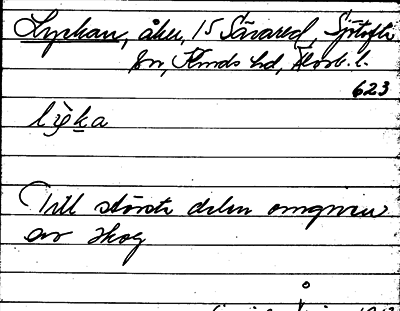 Lyckan, åker, 15 Sävared, Sjötofta
sn, Kinds hd, Älvsb. l.
623
lỳka
Till största delen omgiven
av skog